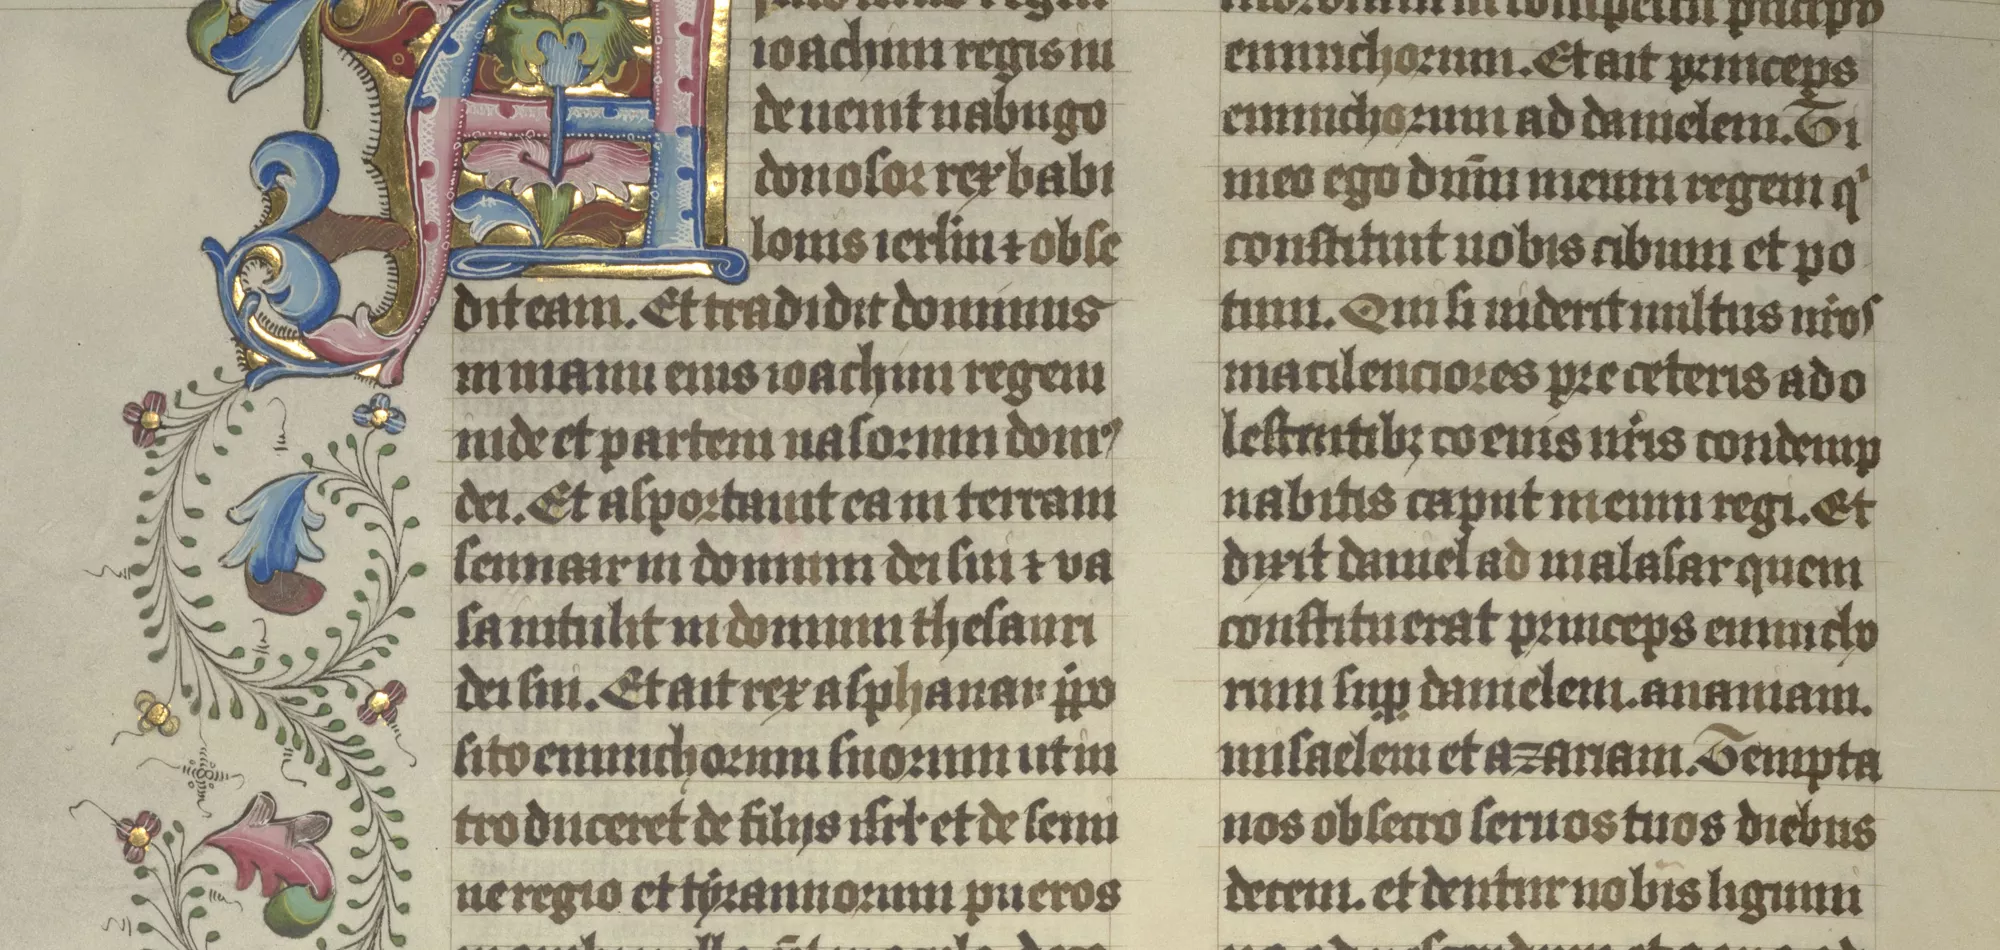 ioachim regis iu
de uenit nabugo
donosor rex babi
lonis ierl̄m ⁊ obse
dit eam. Et tradidit dominus
in manu eius ioachim regem
iude et partem uasorum domꝰ
dei. Et asportauit ea in terram
sennaar in domum dei sui ⁊ va
sa intulit in domum thesauri
dei sui. Et ait rex asphanar p̄po
sito eunuchorum suorum ut in
troduceret de filijs isrl̄ et de semi
ne regio et tyrannorum pueros
eunuchorum. Et ait princeps
eunuchorum ad danielem. Ti
meo ego dn̄m meum regem qͥ
constituit uobis cibum et po
tum. Qui si uiderit uultus ur̄os
macilenciores pre ceteris ado
lescentibꝫ coeuis ur̄is condemp
nabitis caput meum regi. Et
dixit daniel ad malasar quem
constituerat princeps eunucho
rum suꝑ danielem. ananiam.
misaelem et azariam. Tempta
nos obsecro seruos tuos diebus
decem. et dentur nobis ligum